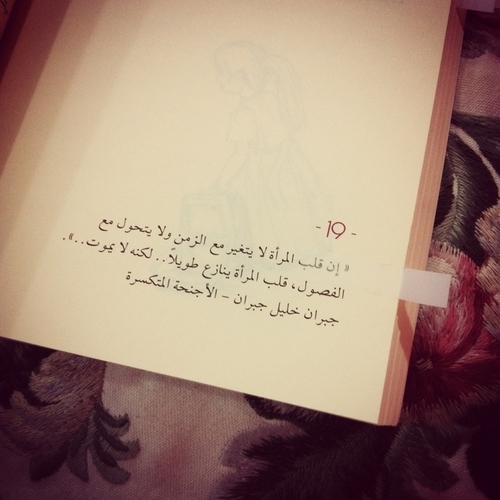 -19-
« إن قلب المرأة لا يتغير مع الزمن ولا يتحول مع
الفصول، قلب المرأة ينازع طويلاً.. لكنه لا يموت..».
جبران خليل جبران – الأجنحة المتكسرة